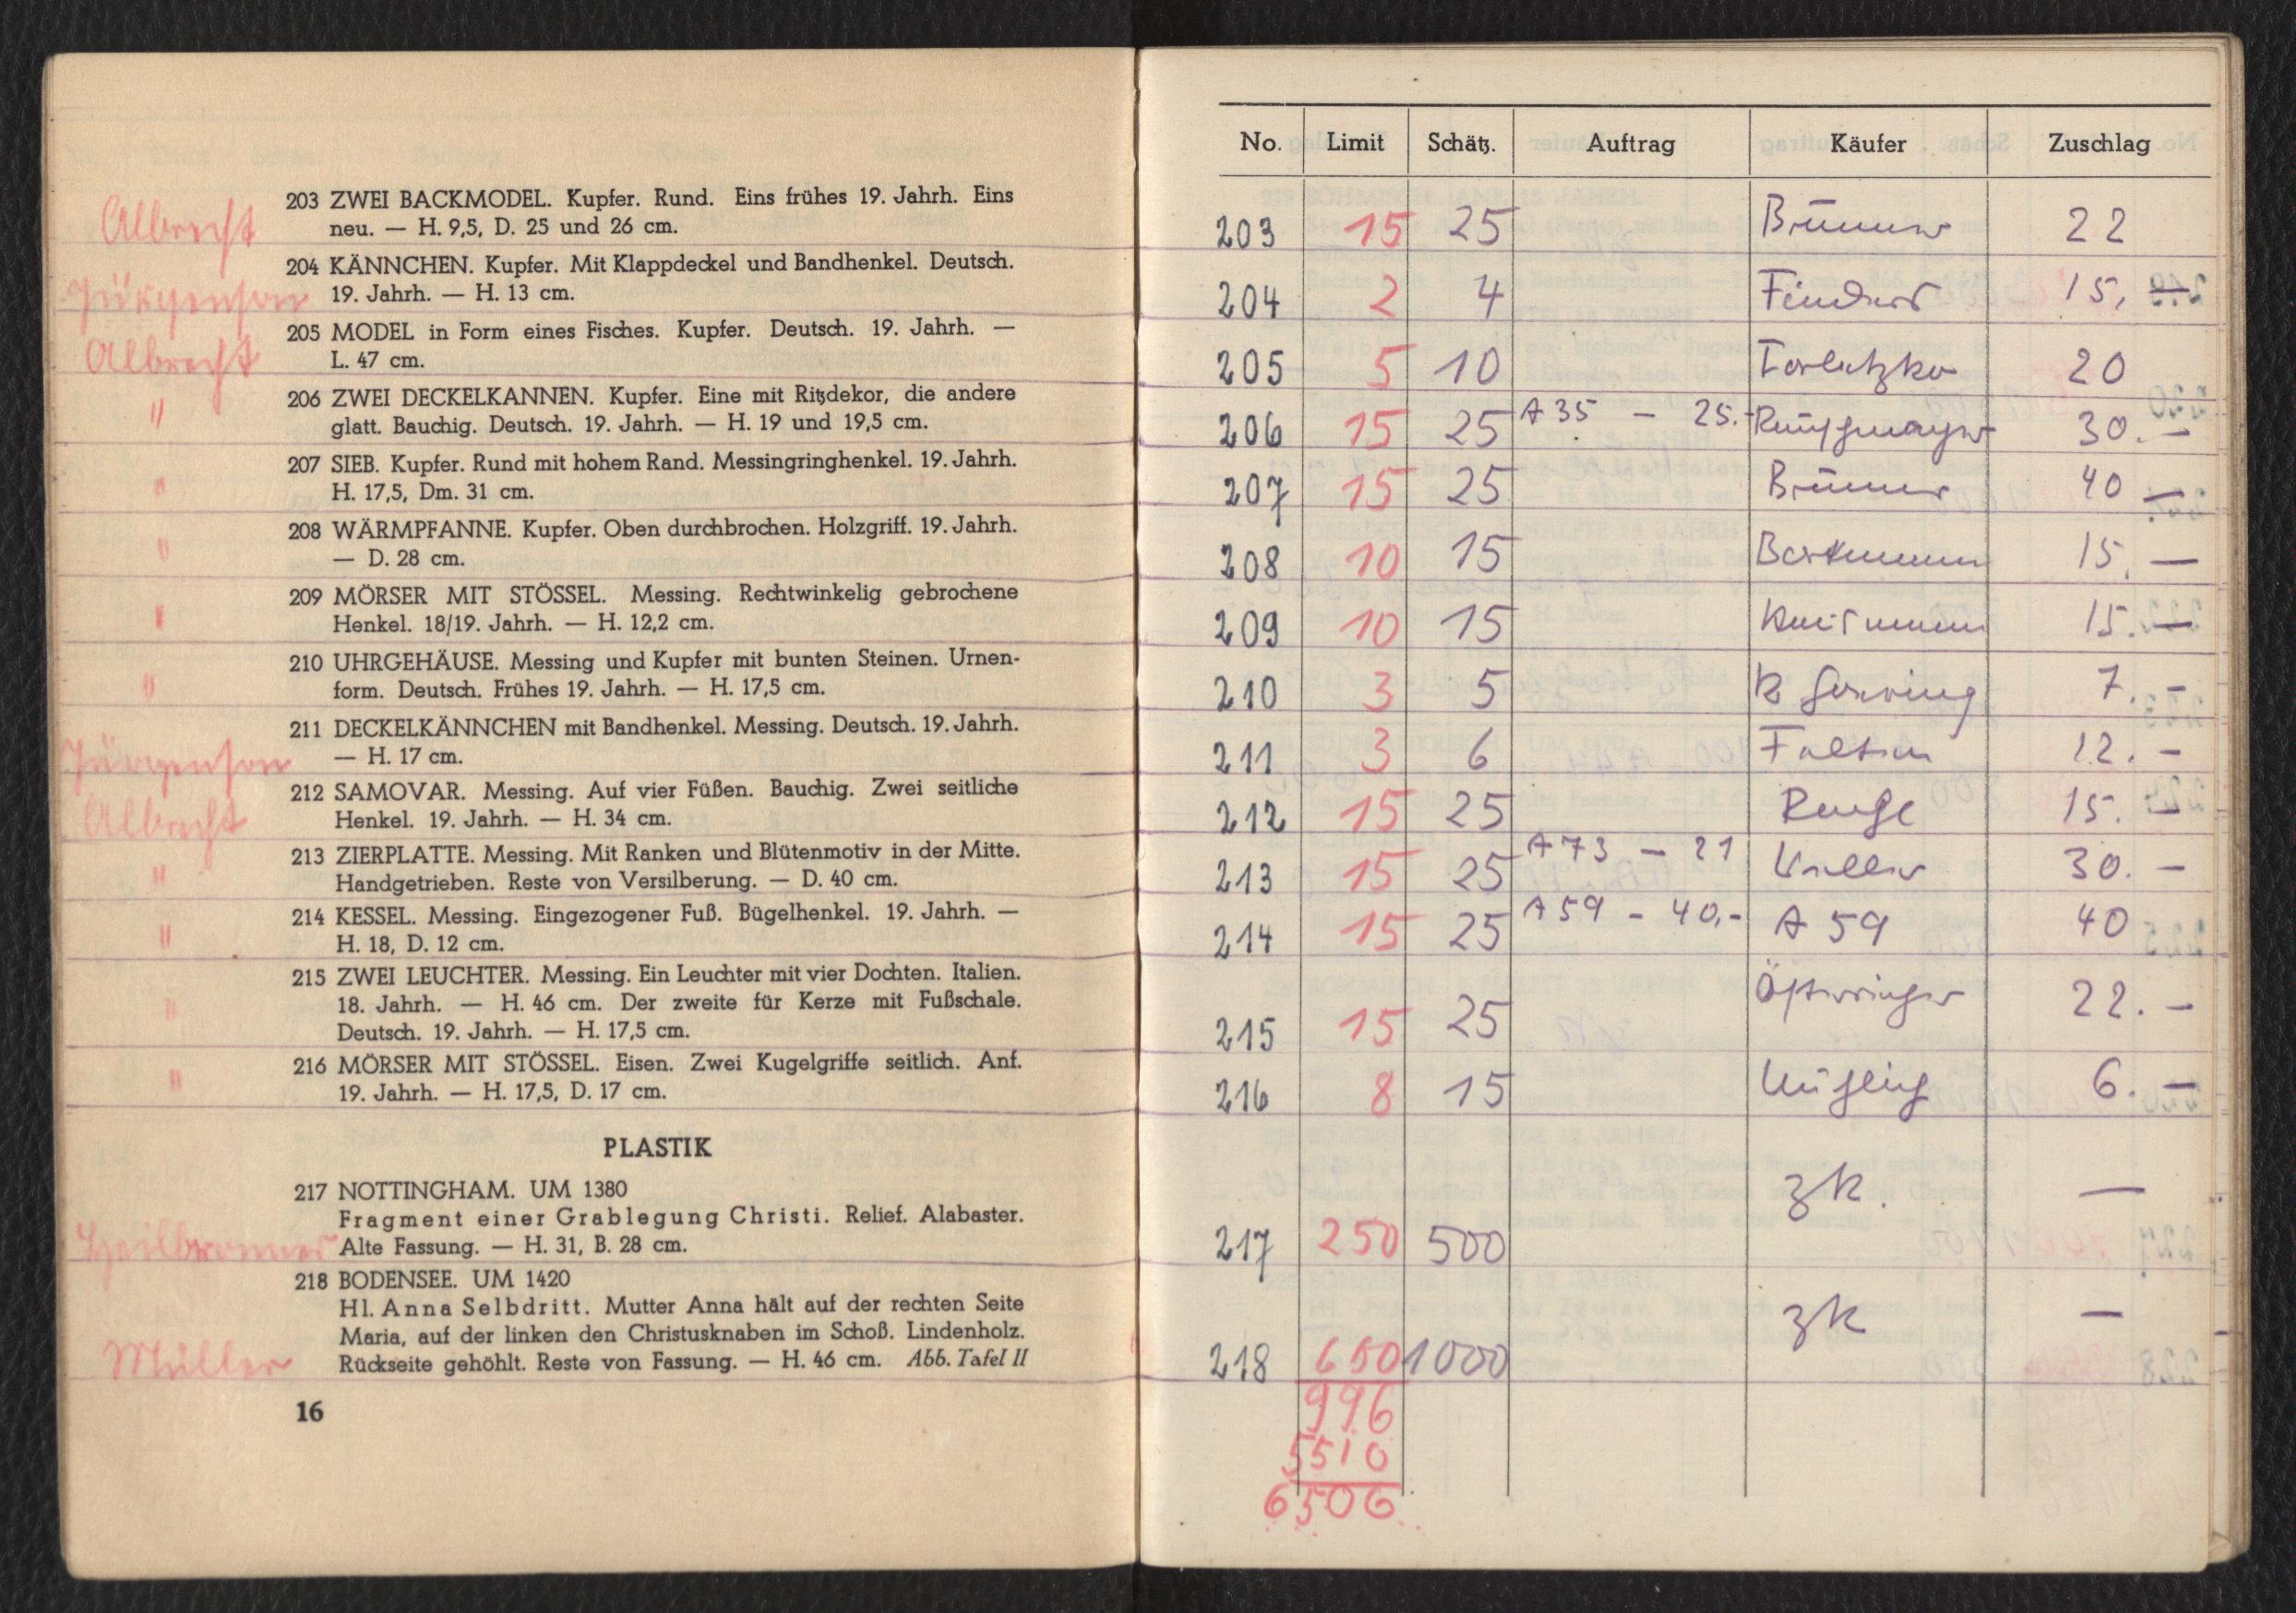 Albrecht
203 ZWEI BACKMODEL. Kupfer. Rund. Eins frühes 19. Jahrh. Eins
neu. — H. 9,5, D. 25 und 26 cm.
Jürgenson
204 KÄNNCHEN. Kupfer. Mit Klappdeckel und Bandhenkel. Deutsch.
19. Jahrh. — H. 13 cm.
Albrecht
205 MODEL in Form eines Fisches. Kupfer. Deutsch. 19. Jahrh. —
L. 47 cm.
"
206 ZWEI DECKELKANNEN. Kupfer. Eine mit Ritzdekor, die andere
glatt. Bauchig. Deutsch. 19. Jahrh. — H. 19 und 19,5 cm.
"
207 SIEB. Kupfer. Rund mit hohem Rand. Messingringhenkel. 19. Jahrh.
H. 17,5, Dm. 31 cm.
"
208 WÄRMPFANNE. Kupfer. Oben durchbrochen. Holzgriff. 19. Jahrh.
— D. 28 cm.
"
209 MÖRSER MIT STÖSSEL. Messing. Rechtwinkelig gebrochene
Henkel. 18/19. Jahrh. — H. 12,2 cm.
"
210 UHRGEHÄUSE. Messing und Kupfer mit bunten Steinen. Urnen-
form. Deutsch. Frühes 19. Jahrh. — H. 17,5 cm.
Jürgenson
211 DECKELKÄNNCHEN mit Bandhenkel. Messing. Deutsch. 19. Jahrh.
— H. 17 cm.
Albrecht
212 SAMOVAR. Messing. Auf vier Füßen. Bauchig. Zwei seitliche
Henkel. 19. Jahrh. — H. 34 cm.
"
213 ZIERPLATTE. Messing. Mit Ranken und Blütenmotiv in der Mitte.
Handgetrieben. Reste von Versilberung. — D. 40 cm.
"
214 KESSEL. Messing. Eingezogener Fuß. Bügelhenkel. 19. Jahrh. —
H. 18, D. 12 cm.
"
215 ZWEI LEUCHTER. Messing. Ein Leuchter mit vier Dochten. Italien.
18. Jahrh. — H. 46 cm. Der zweite für Kerze mit Fußschale.
Deutsch. 19. Jahrh. — H. 17,5 cm.
"
216 MÖRSER MIT STÖSSEL. Eisen. Zwei Kugelgriffe seitlich. Anf.
19. Jahrh. — H. 17,5, D. 17 cm.
PLASTIK
217 NOTTINGHAM. UM 1380
Fragment einer Grablegung Christi. Relief. Alabaster.
Heilbronner
Alte Fassung. — H. 31, B. 28 cm.
218 BODENSEE. UM 1420
Hl. Anna Selbdritt. Mutter Anna hält auf der rechten Seite
Maria, auf der linken den Christusknaben im Schoß. Lindenholz.
Müller
Rückseite gehöhlt. Reste von Fassung. — H. 46 cm. Abb. Tafel II
16
No. Limit Schätz. Auftrag Käufer Zuschlag
203 15 25 Brunner 22
204 2 4 15.—
205 5 10 20
206 15 25 A 35 — 25.- 30.—
207 15 25 Brunner 40 —
208 10 15 15.—
209 10 15 15.—
210 3 5 7.-
211 3 6 12.-
212 15 25 15.-
213 15 25 A 73 — 21 30.-
214 15 25 A 59 - 40,- A 59 40
215 15 25 22.-
216 8 15 6.—
217 250 500 zk. —
218 650 1000 zk —
996
5510
6506